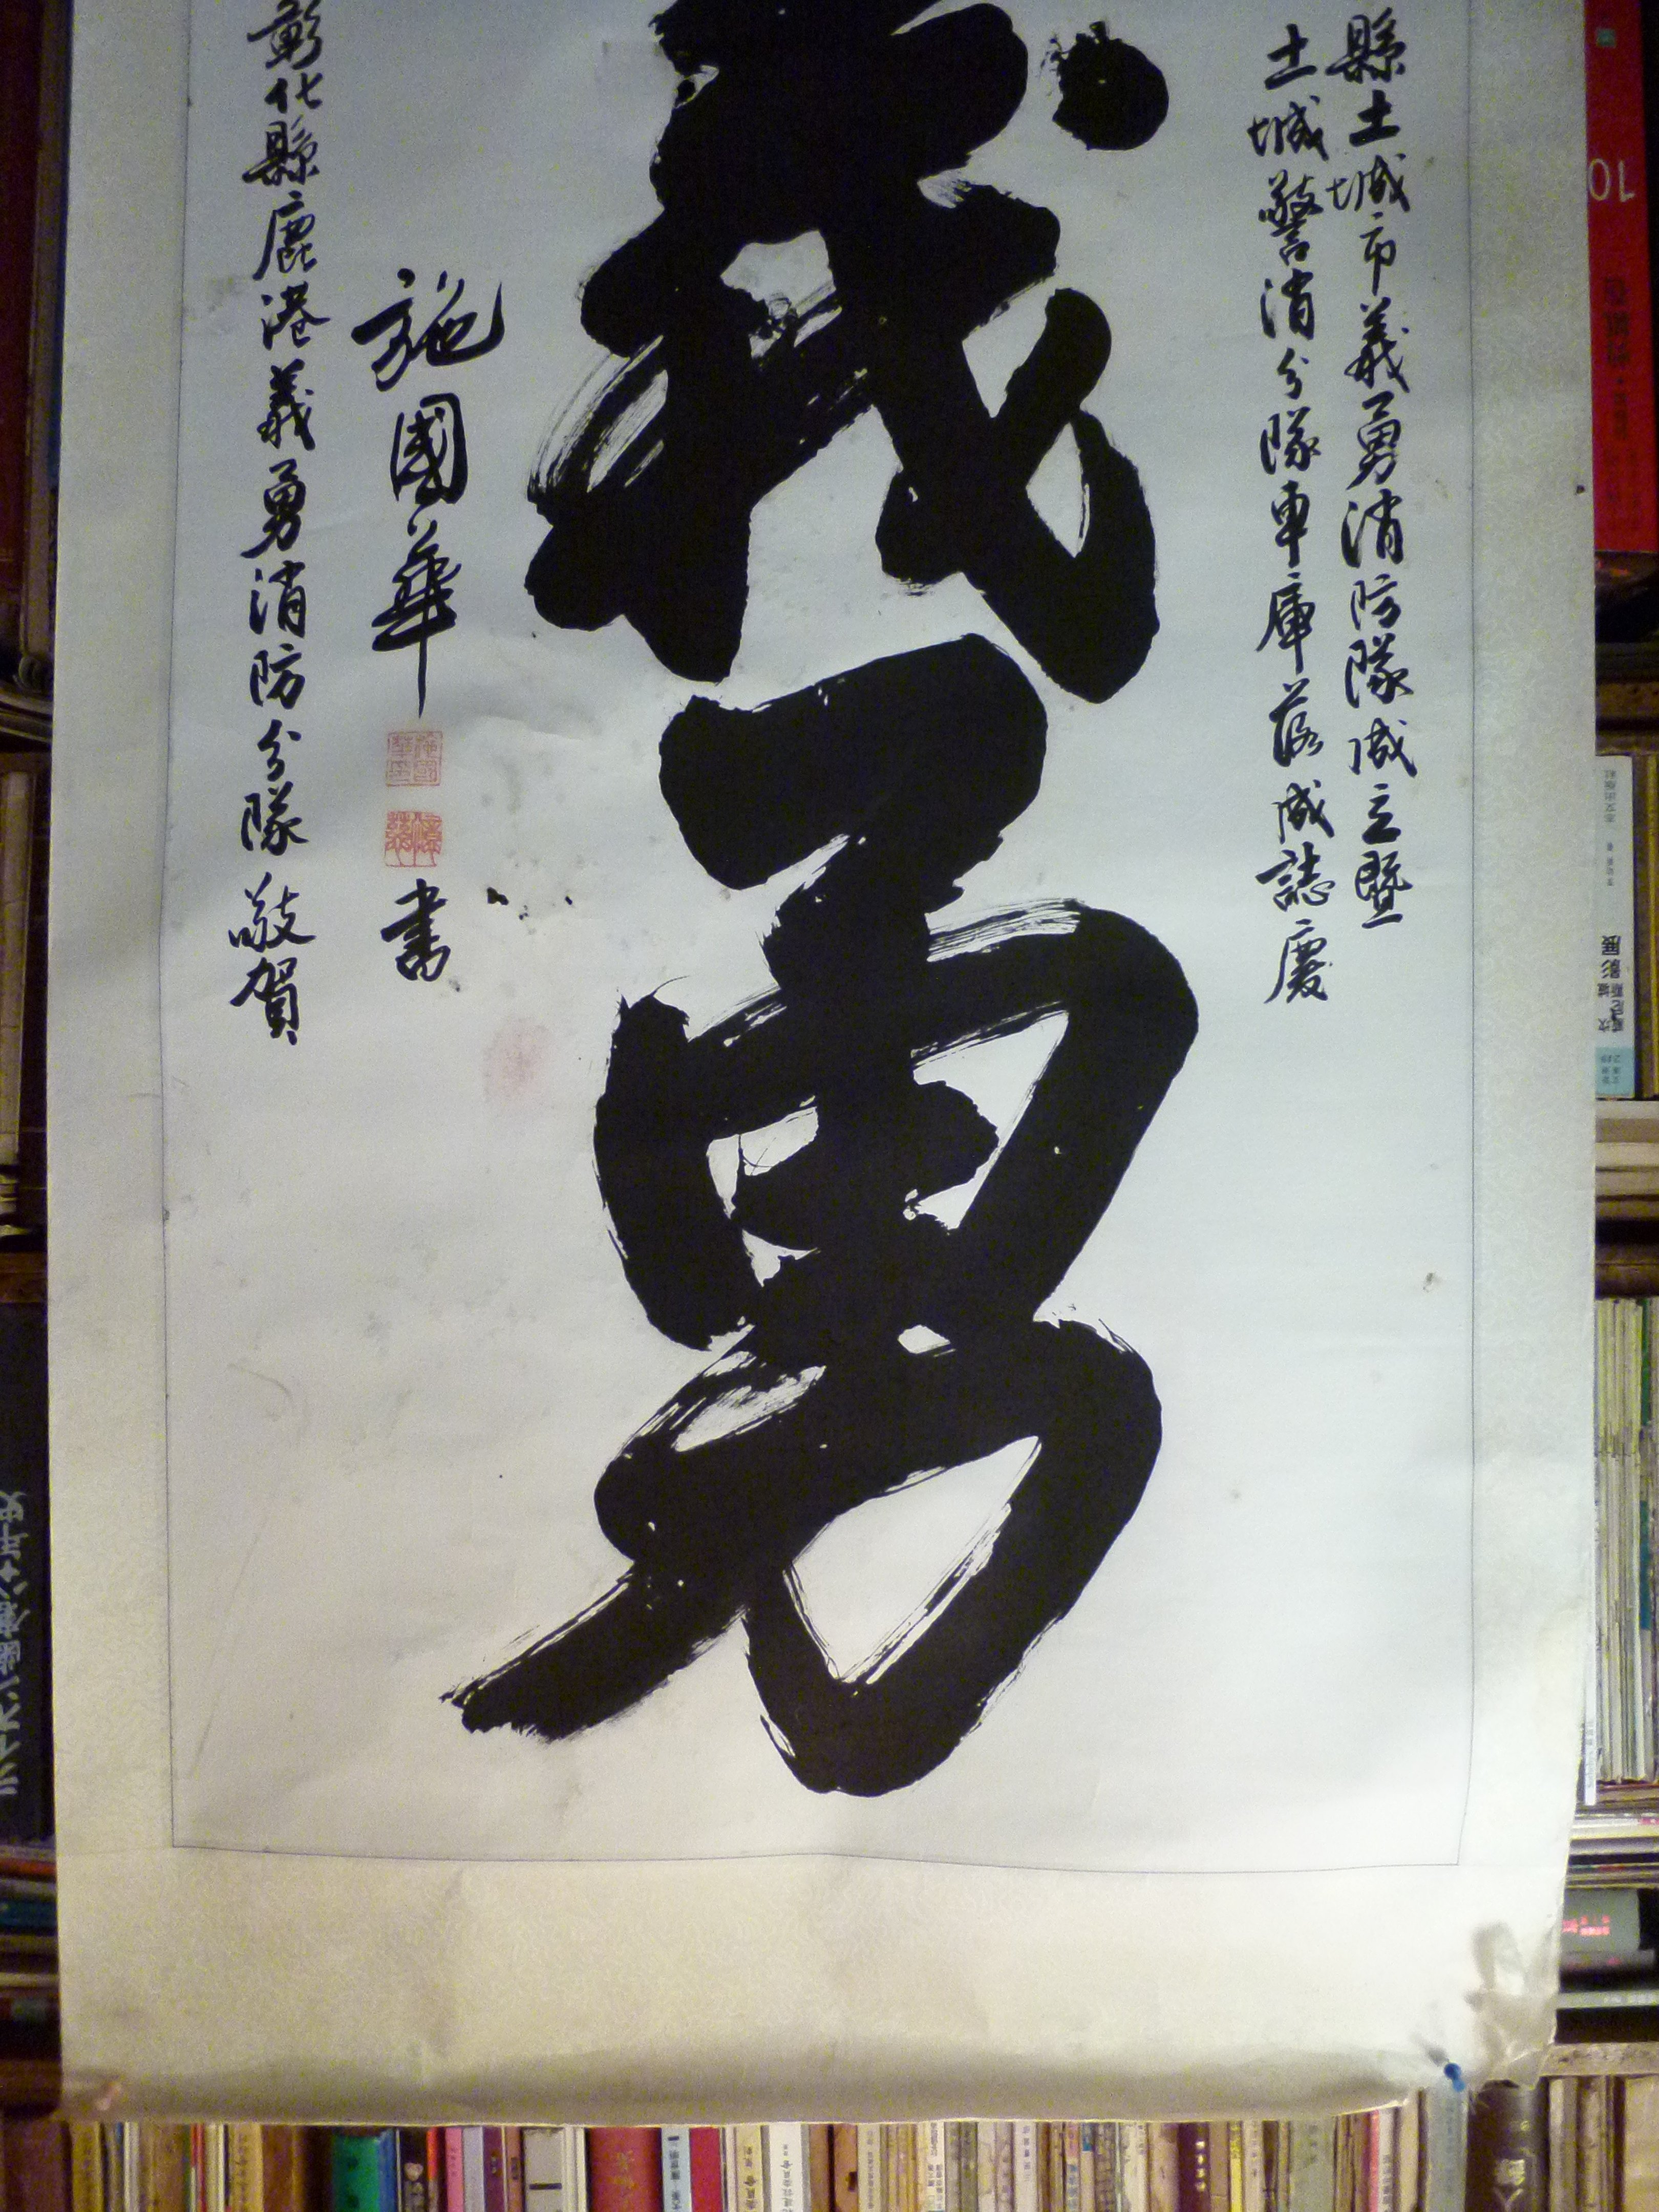 縣土城市義勇消防隊成立暨
土城警消分隊車庫落成誌慶
義勇
施國華
書
彰化縣鹿港義勇消防分隊敬賀
10